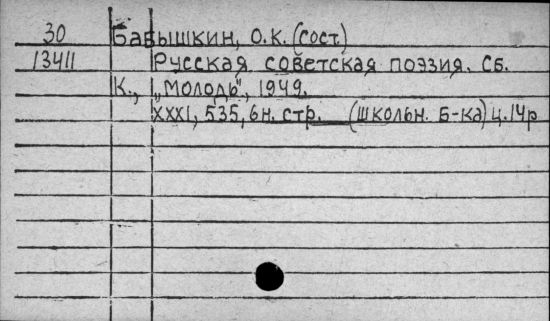 30 Бабышкин, О.К. (сост.)
13411 Русская советская поэзия. Сб.
К., „Молодь", 1949.
XXXI, 535, 6н. стр. (школьн. б-ка) ц. 14р